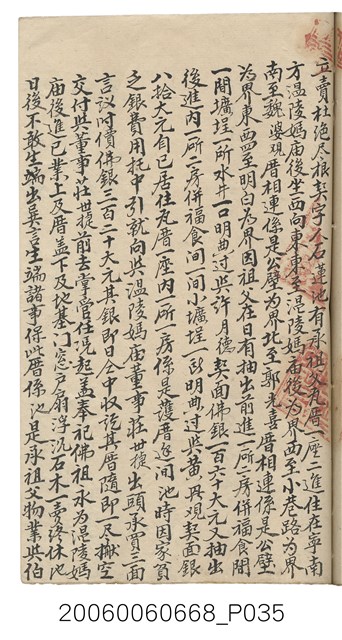 立賣杜絕盡根契字人石蓮池有承祖父瓦厝一座二進住在寧南
方溫陵媽庙後坐西向東東至温陵媽庙後為界西至小巷路為界
南至魏婆观厝相連係是公壁為界北至郭光喜厝相連係是公壁
為界東西四至明白為界因祖父在日有抽出前進一所二房併福食間
一間壙埕一所水井一口明典过与許月德契面佛銀一百六十大元又抽出
後進內一所二房併福食間一間小壙埕一所明典过与黃典观契面銀
八拾大元自己居住瓦厝一座內一所一房係是護厝这间池時因家貧
乏銀費用托中引就向与温陵媽庙董事莊世捷出頭承買三面
言议时價佛銀三百二十大元其銀即日仝中收訖其厝隨即一尽搬空
交付与董事莊世捷前去掌管任從起盖奉祀佛祖永為温陵媽
庙後進已業上及厝盖下及地基门窓户扇浮沉石木一賣終休池
日後不敢生端出異言生端諸事保此厝係池是承祖父物業与伯
20060060668_P035